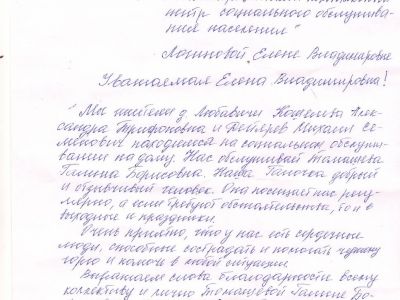 центр социального обслужива-
ния населения"
Логиновой Елене Владимировне
Уважаемая Елена Владимировна!
"Мы жители д. Любавичи Кошелева Алек-
сандра Трифоновна и Михаил Се-
менович находимся на социальном обслужи-
вании на дому. Нас обслуживает Томашева
Галина Борисовна. Наша Галочка добрый
и отзывчивый человек. Она посещает нас регу-
лярно, а если требуют обстоятельства, то и в
выходные и праздники.
Очень приятно, что у нас есть сердечные
люди, способные сострадать и помогать чужому
горю и помочь в любой ситуации.
Выражаем слова благодарности всему
коллективу и лично Томашевой Галине Бо-